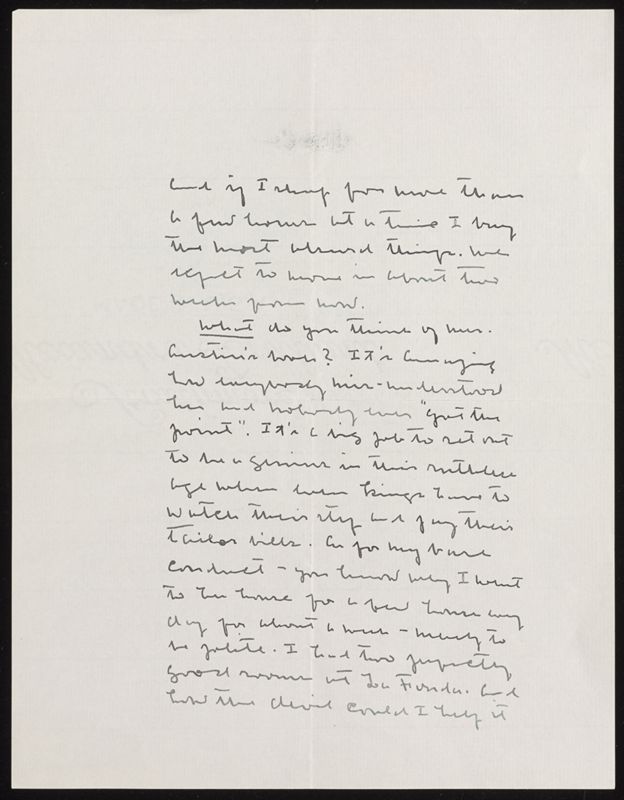 and if I shop for more than
a few hours at a time I buy
the most absurd things. We
expect to move in about two
weeks from now.
What do you think of Mrs.
Austin's book? It's amusing
how everybody mis-understood
her and nobody ever "got the
point". It's a big job to set out
to be a genius in this ruthless
age when even Kings have to
watch their step and pay their
tailor bills. As for my base
conduct - you know why I went
to her house for a few hours every
day for about a week - merely to
be polite. I had two perfectly
good rooms at La Fonda. And
how the devil could I help it